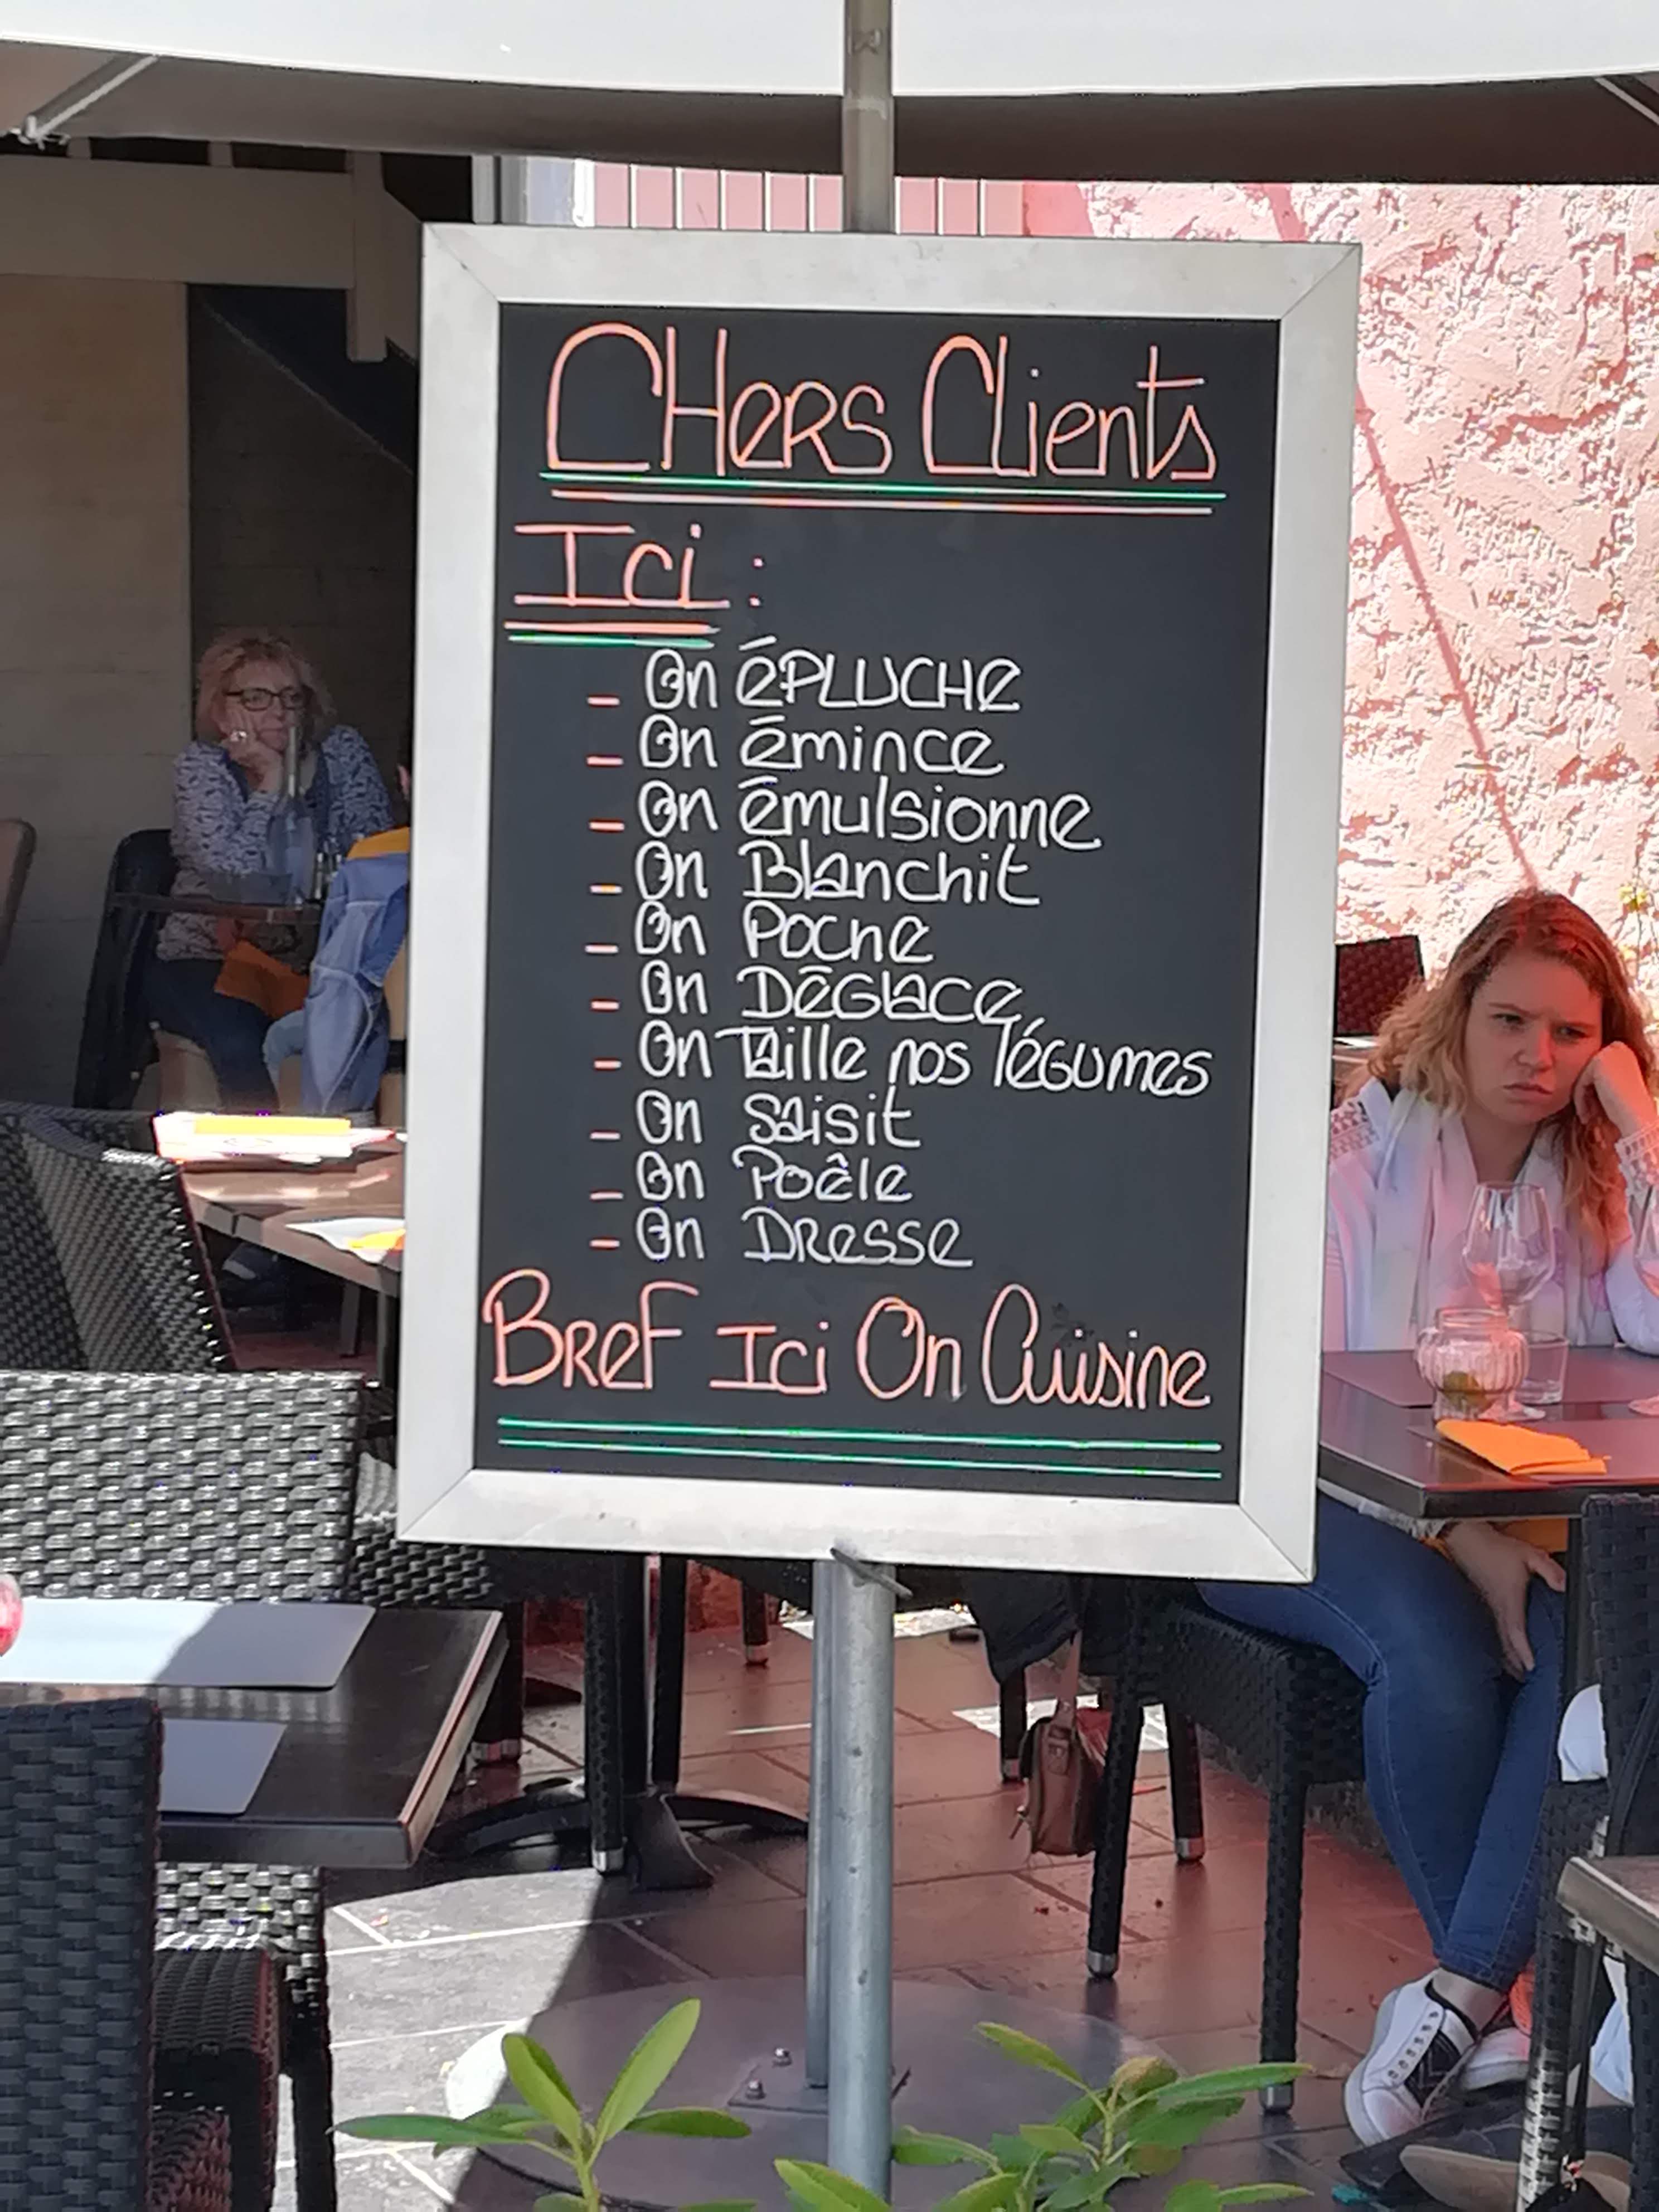 CHers Clients
Ici :
- On éPLUCHe
- On émince
- On émulsionne
- On Blanchit
- On Poche
- On DéGlace
- On Taille nos léGumes
- On Saisit
- On Poêle
- On DResse
BRef Ici On Cuisine